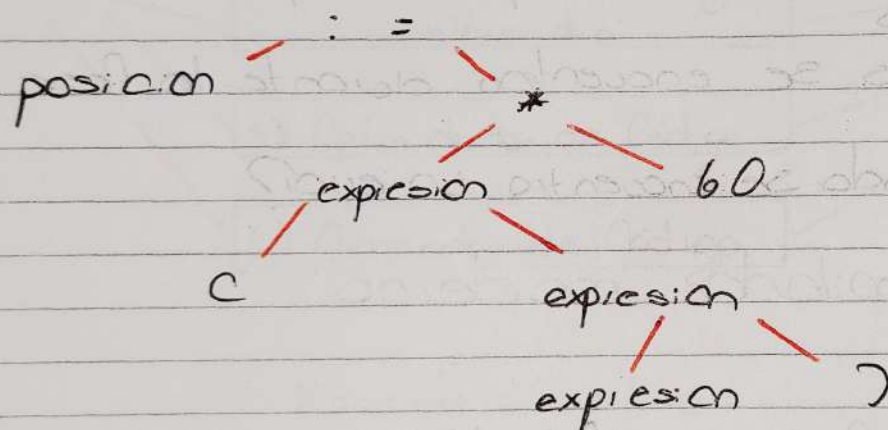 : =
posicion
*
expresion 60
C expresion
expresion )